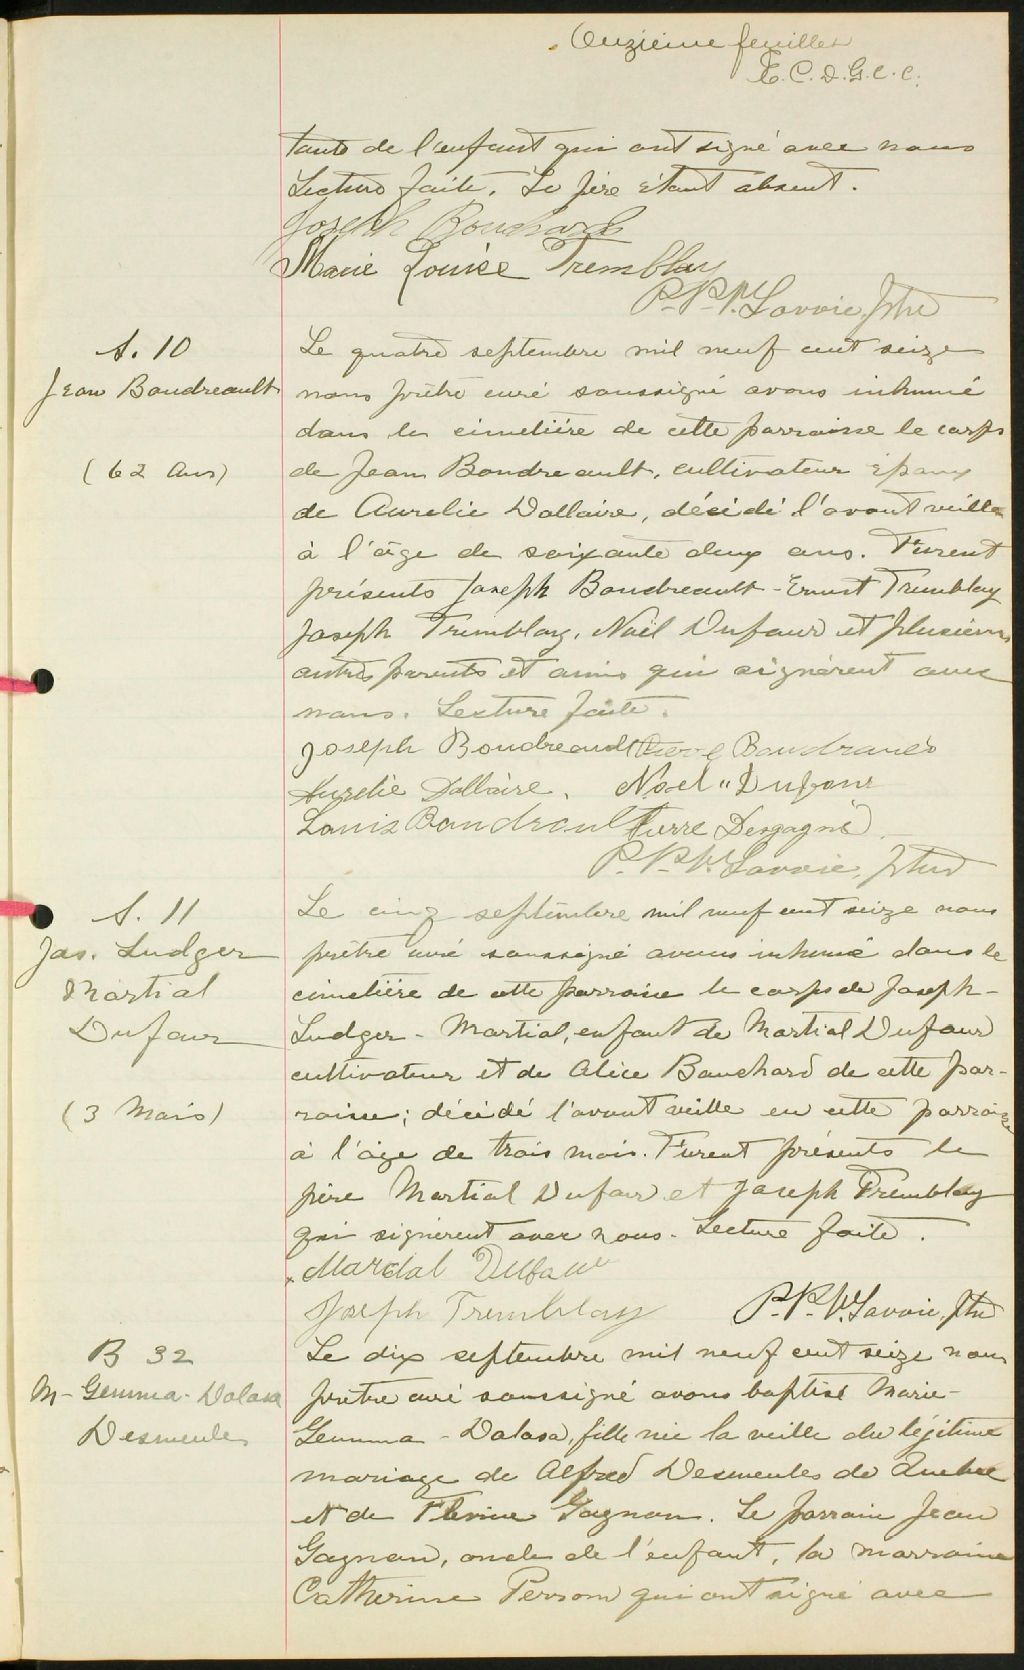 Onzième feuillet
E. C. D. G. C. C.
tante de l'enfant qui ont signé avec nous
Lecture faite. Le père étant absent.
Joseph Bouchard
Marie Louise Tremblay
P. P. V. Lavoie, Ptre
S. 10
Jean Boudreault
(62 ans)
Le quatre septembre mil neuf cent seize
nous prêtre curé soussigné avons inhumé
dans le cimetière de cette parroisse le corps
de Jean Boudreault, cultivateur époux
de Aurelie Dallaire, décédé l'avant veille
à l'âge de soixante deux ans. Furent
présents Joseph Boudreault - Ernest Tremblay
Joseph Tremblay, Noël Dufour et plusieurs
autres parents et amis qui signèrent avec
nous. Lecture faite.
Joseph Boudreault
Aurelie Dallaire, Noel Dufour
Louis Boudreault Pierre Desgagné
P. P. V. Lavoie, Ptre
S. 11
Jos. Ludger
Martial
Dufour
(3 Mois)
Le cinq septembre mil neuf cent seize nous
prêtre curé soussigné avons inhumé dans le
cimetière de cette parroisse le corps de Joseph-
Ludger - Martial, enfant de Martial Dufour
cultivateur et de Alice Bouchard de cette par-
roisse; décédé l'avant veille en cette parroisse
à l'âge de trois mois. Furent présents le
père Martial Dufour et Joseph Tremblay
qui signèrent avec nous. Lecture faite.
Marcial Dufour
Joseph Tremblay P. P. V. Lavoie, Ptre
B 32
M- Gemma- Dalasa
Desmeules
Le dix septembre mil neuf cent seize nous
prêtre curé soussigné avons baptisé Marie-
Gemma - Dalasa, fille née la veille du légitime
mariage de Alfred Desmeules de Quebec
et de Gagnon. Le parrain Jean
Gagnon, oncle de l'enfant, la marraine
Catherine Perron qui ont signé avec